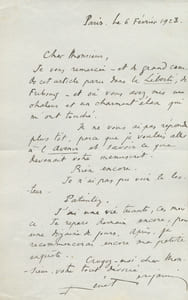 Paris. Le 6 Février 1923.
Cher Monsieur,
Je vous remercie – et de grand cœur
de cet article paru dans La Liberté, de
Fribourg – et où vous avez mis une
chaleur et un charme
m'ont touché
Je ne vous ai pas répondu
plus tôt, parce que je voulais aller
à l'Avenir et savoir ce que
devenait votre manuscrit.
Rien encore.
Je n'ai pas pu voir le
Patientez.
J'ai une vie
Je repars demain encore, pour
une dizaine de jours. Après, je
recommencerai encore ma petite
enquête. Croyez-moi, cher Mon-
sieur, votre tout dévoué
René Benjamin